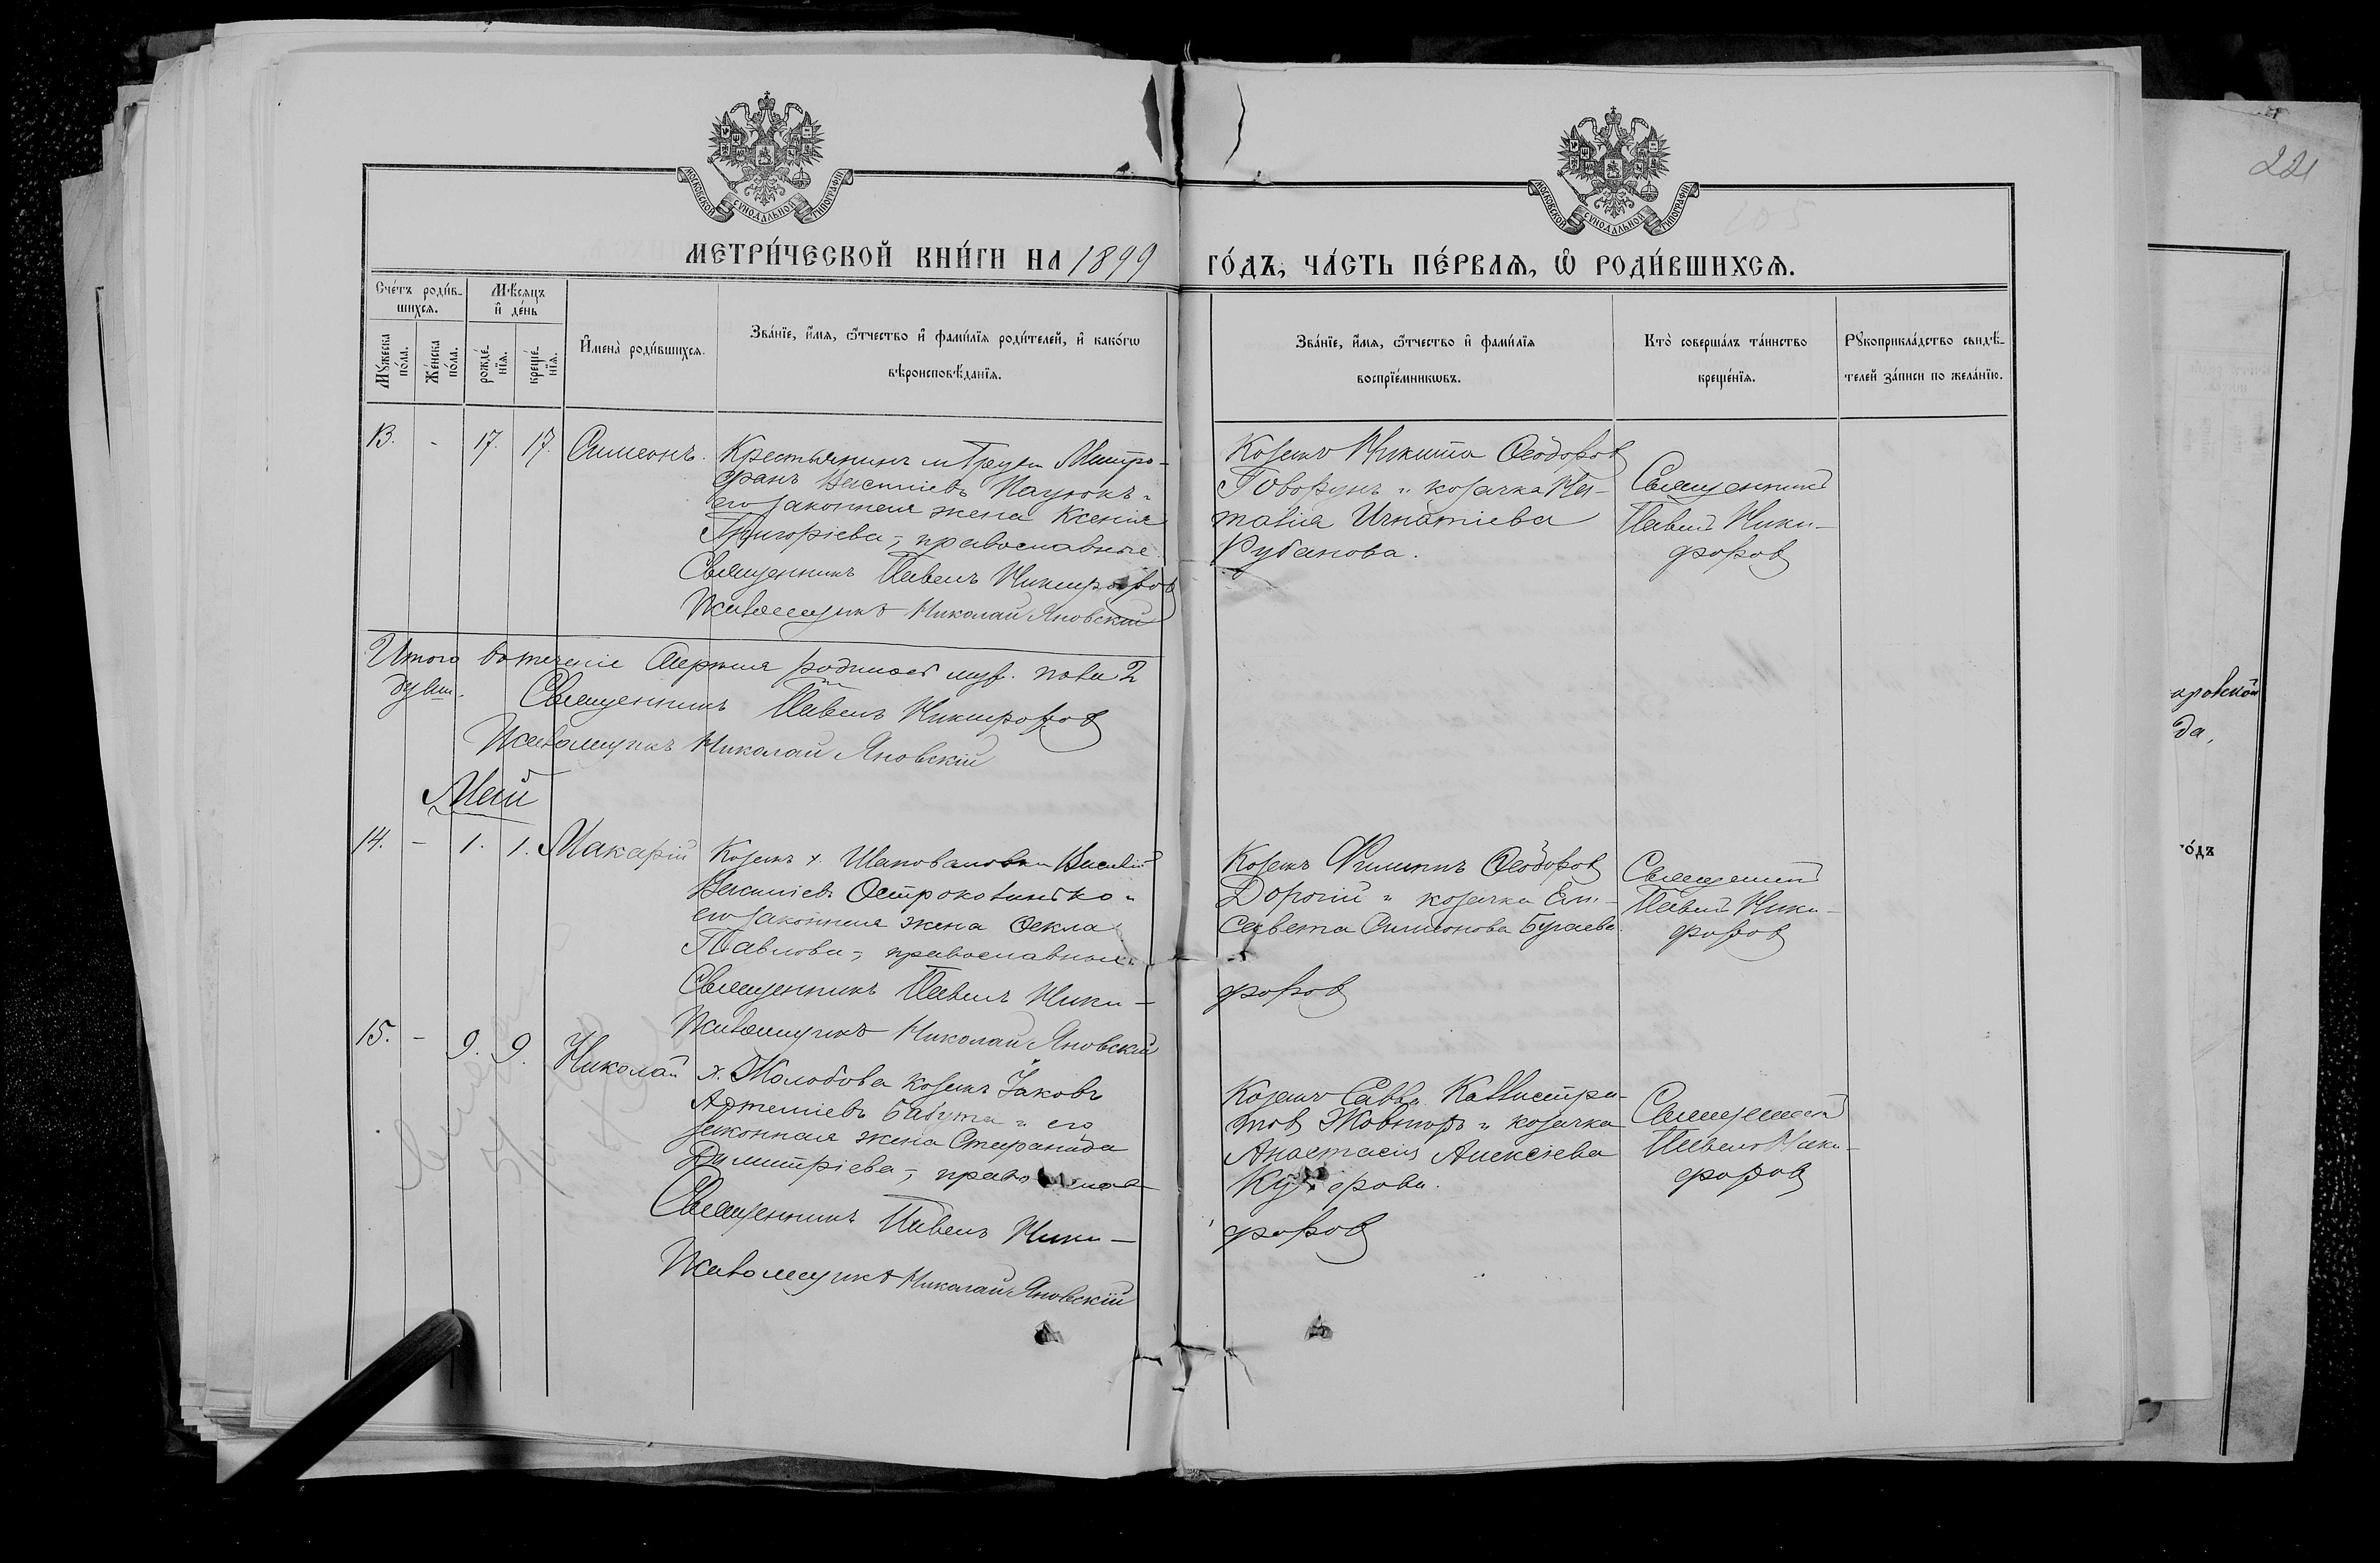 221
МОСКОВСКОЙ СУНОДАЛЬНОЙ ТИПОГРАФІИ
МОСКОВСКОЙ СУНОДАЛЬНОЙ ТИПОГРАФІИ
МЕТРИ́ЧЕСКОЙ КНИ́ГИ НА 1899
ГО́ДЪ, ЧА́СТЬ ПЕ́РВАЯ, Ѡ҆ РОДИ́ВШИХСЯ.
Сче́тъ роди́в-
шихся.
Мѣ́сяцъ
и҆ де́нь
Мꙋ́жеска
по́ла.
Же́нска
по́ла.
рожде́-
нїя.
креще́-
нїя.
И҆мена̀ роди́вшихся.
Зва́нїе, и҆́мя, ѻ҆́тчество и҆ фами́лїя роди́телей, и҆ како́гѡ
вѣроисповѣ́данїя.
Зва́нїе, и҆́мя, ѻ҆́тчество и҆ фами́лїя
воспрїе́мникѡвъ.
Кто̀ соверша́лъ та́инство
креще́нїя.
Рꙋкоприкла́дство свидѣ́-
телей за́писи по жела́нїю.
13. - 17. 17. Симеонъ. Крестьянинъ м. Митро-
фанъ Василіевъ Пацюкъ и
его законная жена Ксенія
Григоріева, православные
Священникъ Павелъ Никифоров
Псаломщикъ Николай Яновскій
Козакъ Никита Ѳеодоров
Говорунъ и козачка На-
талія Игнатіева
Рубанова.
Священникъ
Павелъ Ники-
форов
Итого въ теченіе Апрѣля родилось муж. пола 2
душ. Священникъ Павелъ Никифоров
Псаломщикъ Николай Яновскій
Май
14. - 1. 1. Макарій Козакъ х. Шаповаловки Василій
Василіев
его законная жена Ѳекла
Павлова, православные
Священникъ Павелъ Ники-
форов
Псаломщикъ Николай Яновскій
Козакъ Филиппъ Ѳеодоров
Дорогій и козачка Ели-
савета Симеонова Бугаева.
Священникъ
Павелъ Ники-
форов
15. - 9. 9. Николай х. Жолобова козакъ Іаковъ
Артеміевъ Бабута и его
законная жена Стефанида
Димитріева, православ
Священникъ Павелъ Ники-
форов
Псаломщикъ Николай Яновскій
Козакъ Савва Каллистра-
тов Жовниръ и козачка
Анастасія Алексіева
Священникъ
Павелъ Ники-
форов
аровской
да,
го́дъ